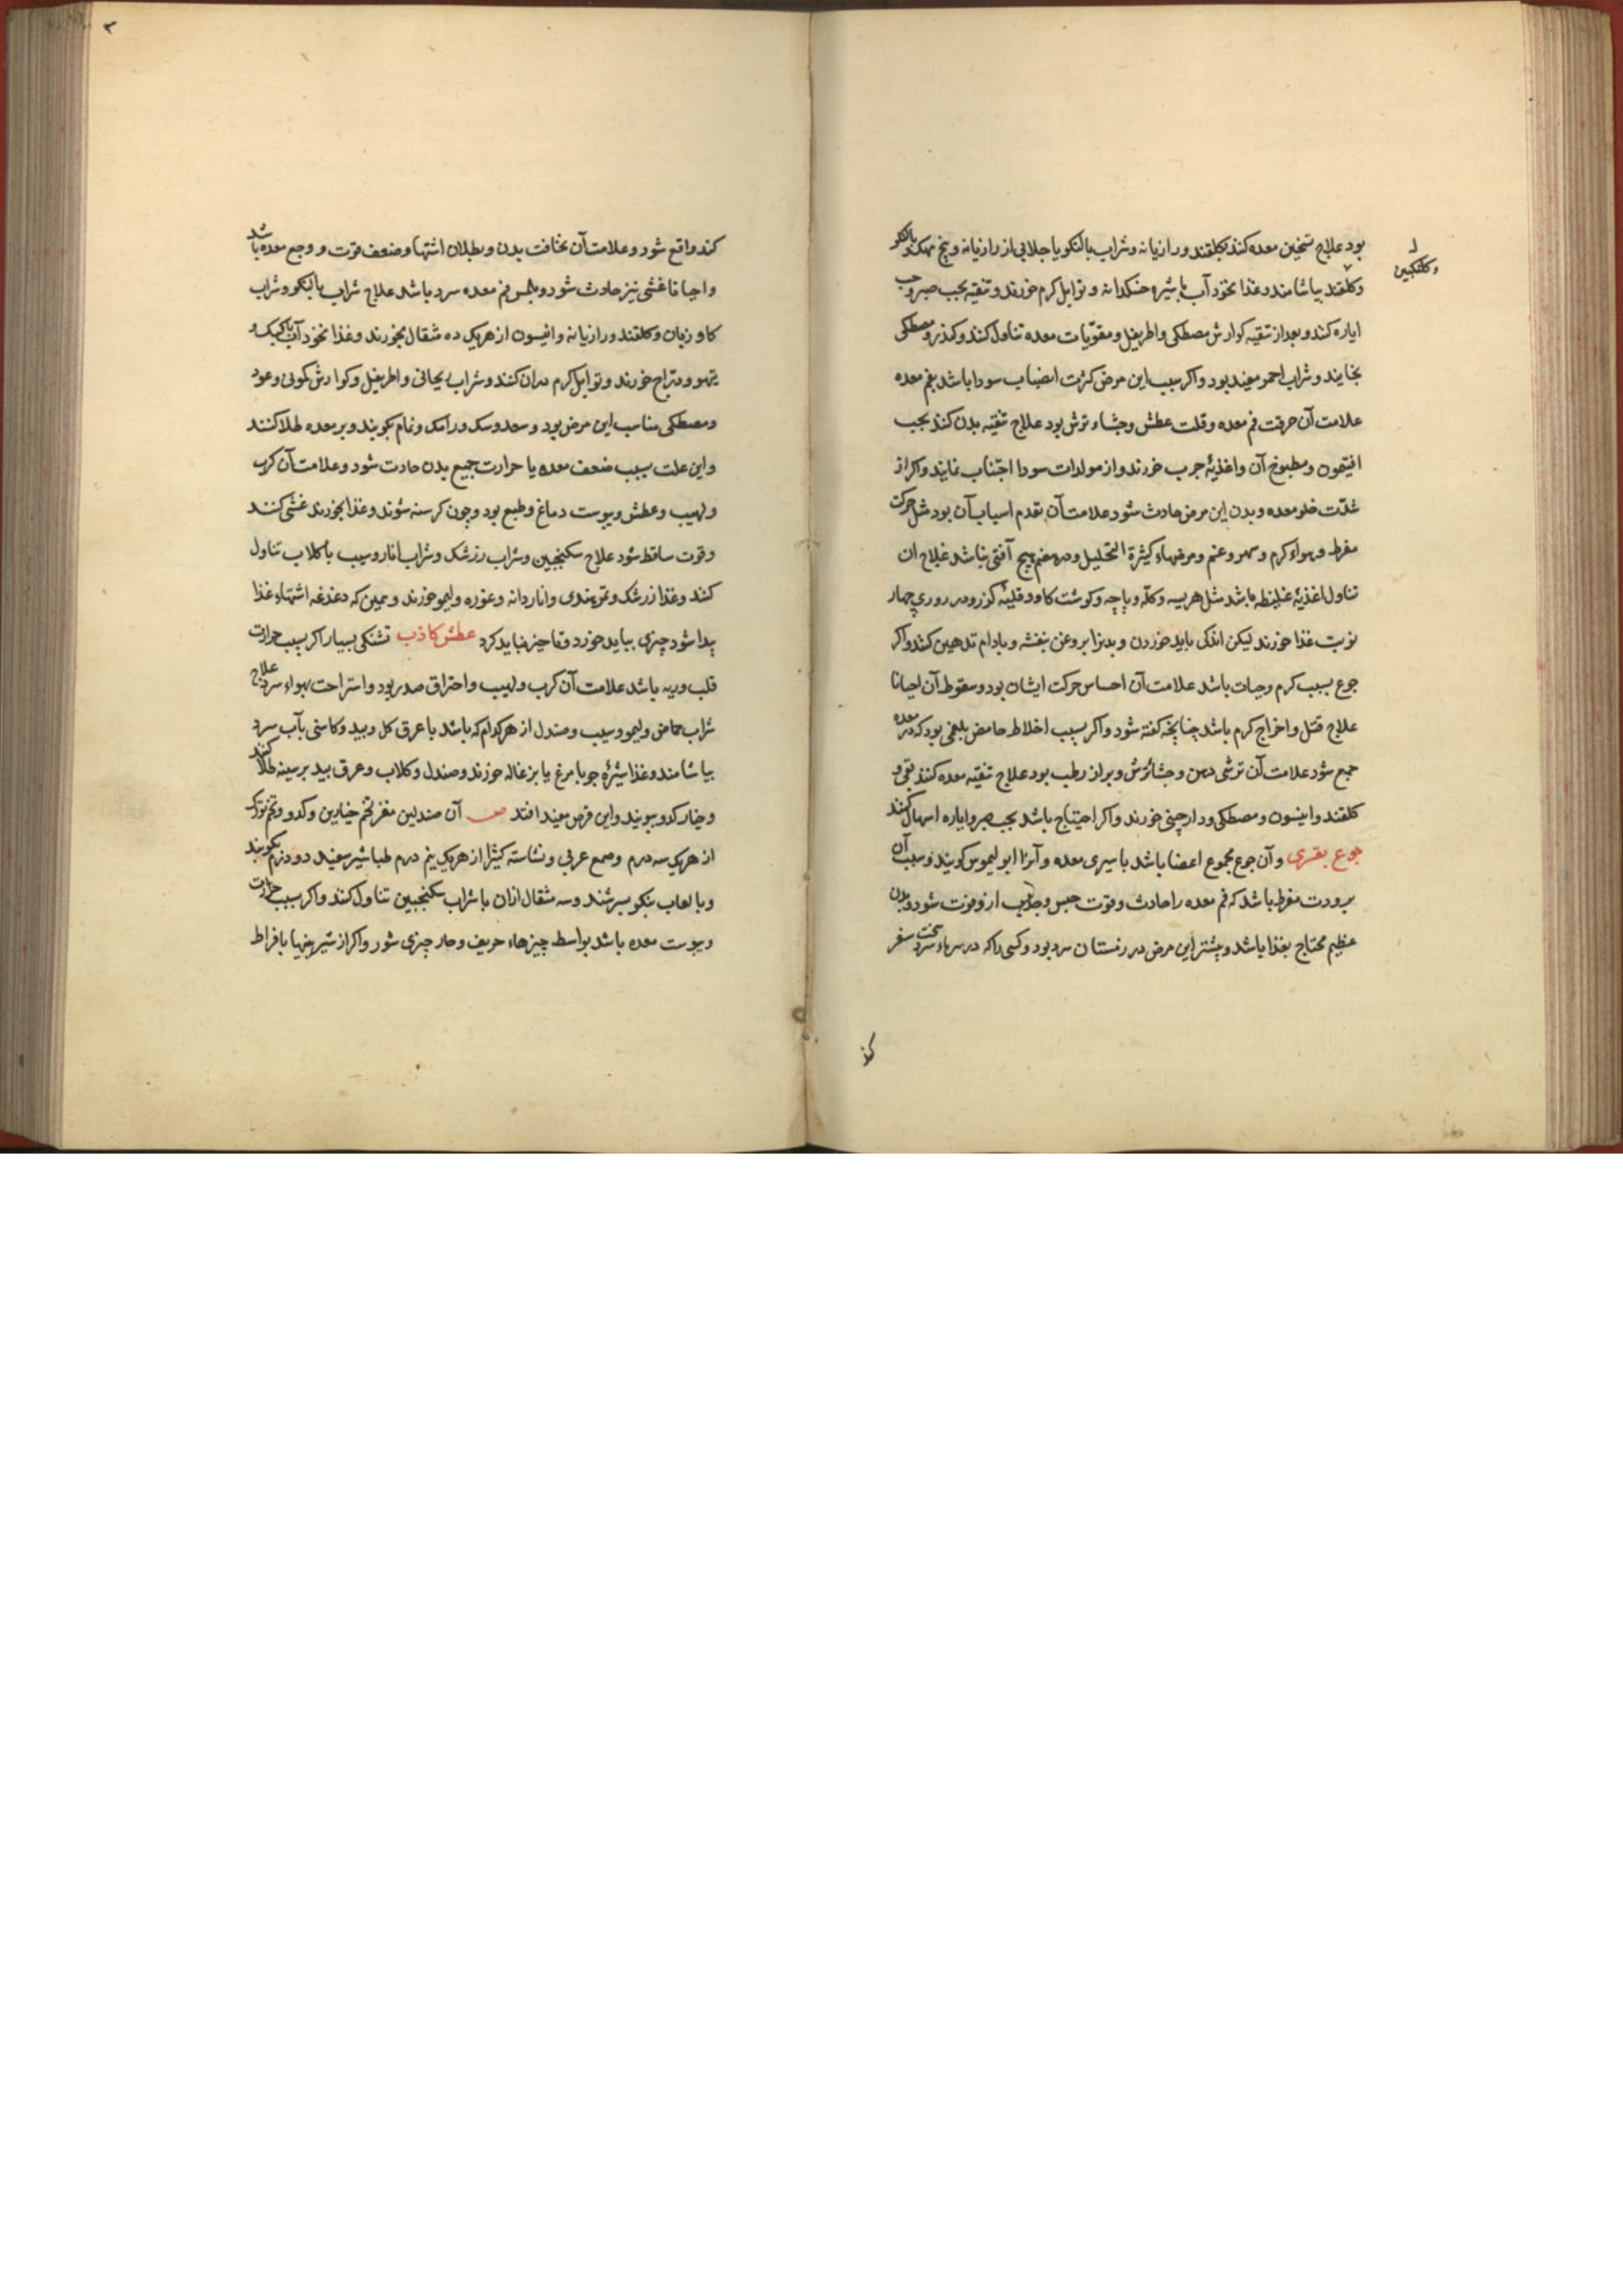 بود علاج تسخین معده کنند بکلقند ورازیانه وشراب بالنکو یا جلابی از رازیانه وبیخ مهک وبالنکو
وکلقند بیاشامند وغذا نخود آب با شیره خسکدانه و توابل کرم خورند و تنقیه بحب صبر وحب
وکلنکبین
ایاره کنند و بعد از تنقیه کوارش مصطکی واطریفل ومقویات معده تناول کنند وکندر ومصطکی
بخایند و شراب احمر مفید بود واکر سبب این مرض کثرت انصباب سودا باشد بفم معده
علامت آن حرقت فم معده وقلت عطش وجشاء ترش بود علاج تنقیه بدن کنند بحب
افتیمون ومطبوخ آن واغذیهٔ چرب خورند واز مولدات سودا اجتناب نمایند واکر از
شدّت خلو معده و بدن این مرض حادث شود علامت آن تقدم اسباب آن بود مثل حرکت
مفرط وهواء کرم وسهر وغم ومرضهاء کثیرة التحلیل ودر هضم هیچ آفتی نباشد علاج ان
تناول اغذیهٔ غلیظه باشد مثل هریسه وکلّه و پاچه وکوشت کاو وقلیهٔ کزر ودر روزی چهار
نوبت غذا خورند لیکن اندکی باید خوردن و بدنرا بروغن بنفشه و بادام تدهین کنند واکر
جوع بسبب کرم وحیات باشد علامت آن احساس حرکت ایشان بود وسقوط آن احیانا
علاج قتل واخراج کرم باشد چنانچه کفته شود واکر بسبب اخلاط حامض بلغمی بود که در معده
جمع شود علامت آن ترشی دهن و جشاء ترش و براز رطب بود علاج تنقیه معده کنند بقی و
کلقند وانیسون ومصطکی ودارچینی خورند واکر احتیاج باشد بحب صبر وایاره اسهال کنند
جوع بقری وآن جوع مجموع اعضا باشد با سیری معده وآنرا ابولیموس کویند وسبب آن
برودت مفرط باشد که فم معده را حادث وقوت حس وجذب ازو فوت شود وبدن
عظیم محتاج بغذا باشد و بیشتر این مرض در زمستان سرد بود وکسی را که در سرماء سخت سفر
کند
کند واقع شود وعلامت آن نحافت بدن و بطلان اشتها وضعف قوت و وجع معده باشد
واحیانا غشی نیز حادث شود وملمس فم معده سرد باشد علاج شراب بالنکو وشراب
کاو زبان وکلقند ورازیانه وانیسون از هریک ده مثقال بخورند وغذا نخود آب با کبک و
تیهو ودرّاج خورند وتوابل کرم دران کنند وشراب ریحانی واطریفل وکوارش کمونی وعود
ومصطکی مناسب این مرض بود وسعد وسک ورامک ونمام بکوبند وبر معده طلا کنند
واین علت بسبب ضعف معده با حرارت جمیع بدن حادث شود وعلامت آن کرب
ولهیب وعطش ویبوست دماغ وطبع بود وچون کرسنه شوند وغذا نخورند غشی کنند
وقوت ساقط شود علاج سکنجبین وشراب زرشک وشراب انار وسیب با کلاب تناول
کنند وغذا زرشک وتمر هندی وانار دانه وغوره ولیمو خورند وهمین که دغدغه اشتهاء غذا
پیدا شود چیزی بباید خورد وتاخیر نباید کرد عطش کاذب تشنکی بسیار اکر بسبب حرارت
قلب وریه باشد علامت آن کرب ولهیب واحتراق صدر بود واستراحت بهواء سرد علاج
شراب حماض ولیمو وسیب وصندل از هرکدام که باشد با عرق کل وبید وکاسنی بآب سرد
بیاشامند وغذا شیرهٔ جو با مرغ یا بزغاله خورند وصندل وکلاب وعرق بید بر سینه طلا کنند
وخیار کدو ببویند واین قرص مفید افتد صفت آن صندلین مغز تخم خیارین وکدو وتخم تورک
از هریک سه درم وصمغ عربی ونشاسته کثیرا از هریک نیم درم طباشیر سفید دو درم بکوبند
وبا لعاب بنکو سرشند وسه مثقال ازان با شراب سکنجبین تناول کنند واکر سبب حرارت
ویبوست معده باشد بواسطه چیزهاء حریف وحار چیزی شور واکر از شیرینیها بافراط